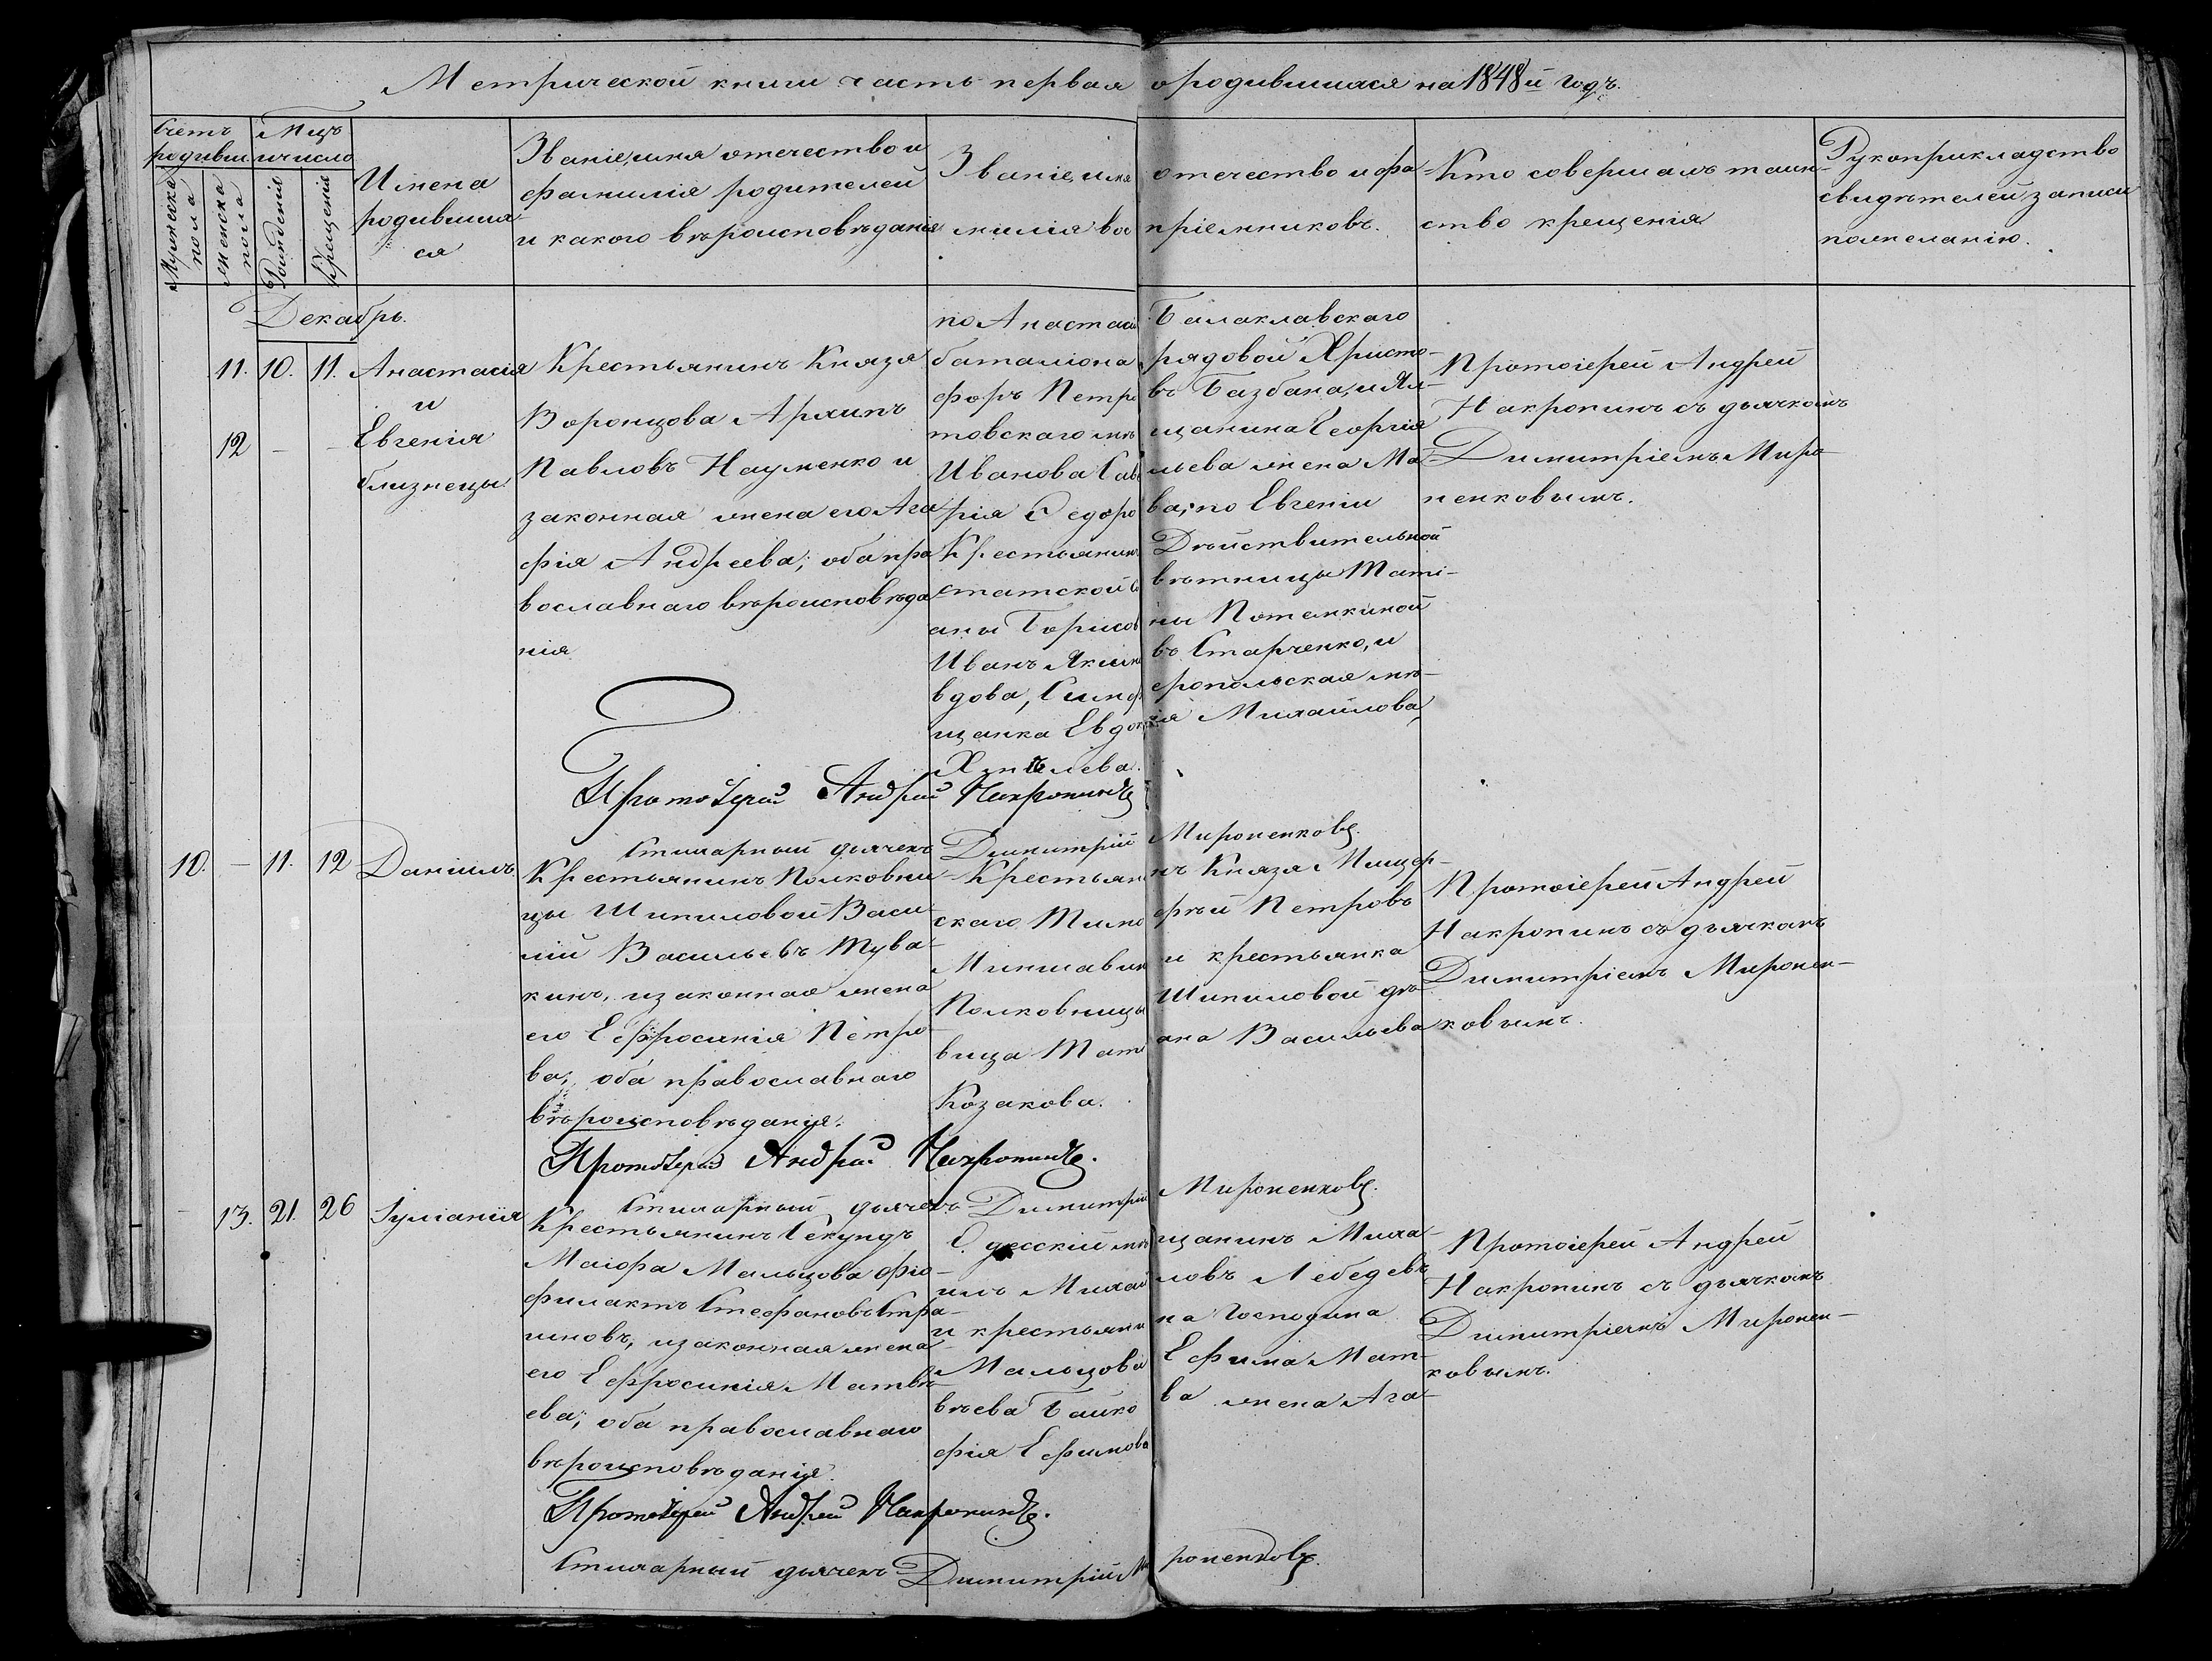 Метрической книги часть первая о родившихся на 1848й Годъ.
Счетъ родивш.
Мцъ и число
Мужеска пола
женска пола
Рожденія
Крещенія
Имена
родивших
ся
Званіе, имя отечество и
фамилія родителей
и какого вѣроисповѣданія
Званіе, имя отечество и фа-
милія воспріемниковъ.
Кто совершалъ таин-
ство крещенія
Рукоприкладство
свидѣтелей записи
по желанію.
Декабрь.
11. 10. 11. Анастасія
и
12 — — Евгенія
близнецы.
Крестьянинъ Князя
Воронцова Архипъ
Павловъ Науменко и
законная жена его Ага
фія Андреева; оба пра
вославнаго вѣроисповѣда
нія
по Анастасіи Балаклавскаго
баталіона рядовой Христо-
форъ Петровъ Базбана, и Ял-
товскаго мѣщанина Георгія
Иванова Савельева жена Ма-
рія Ѳедорова; по Евгеніи
Крестьянинъ Дѣйствительной
статской совѣтницы Тать-
аны Борисовны Потемкиной
Иванъ Якимовъ Старченко, и
вдова, Симферопольская мѣ-
щанка Евдокія Михайлова
Хмѣлева.
Протоіерей Андрей
Накропинъ съ дьячкомъ
Димитріемъ Миро-
ненковымъ.
Протоіерей Андрей Накропинъ
Стихарный дьячекъ Димитрій Мироненковъ.
10. — 11. 12 Даніилъ
Крестьянинъ Полковни
цы Шипиловой Васи-
лій Васильевъ Тува-
кинъ, и законная жена
его Ефросинія Петро
ва; оба православнаго
вѣроисповѣданія.
Крестьянинъ Князя Мищер-
скаго Тимофѣй Петровъ
Миншавин и крестьянка
Полковницы Шипиловой дѣ-
вица Татіана Васильева
Козакова.
Протоіерей Андрей
Накропинъ съ дьячкомъ
Димитріемъ Миронен-
ковымъ.
Протоіерей Андрей Накропинъ.
Стихарный дьячекъ Димитрій Мироненковъ.
— 13. 21. 26 Іуліанія
Крестьянинъ Секундъ
Маіора Мальцова Фіо-
филактъ Стефановъ Стра-
шновъ, и законная жена
его Ефросинія Матвѣ-
ева; оба православнаго
вѣроисповѣданія.
Одесскій мѣщанинъ Миха-
илъ Михайловъ Лебедевъ
и крестьянина Господина
Мальцова Ефима Мат-
вѣева Байкова жена Ага-
фія Ефимова
Протоіерей Андрей
Накропинъ съ дьячкомъ
Димитріемъ Миронен-
ковымъ.
Протоіерей Андрей Накропинъ.
Стихарный дьячекъ Димитрій Мироненковъ.